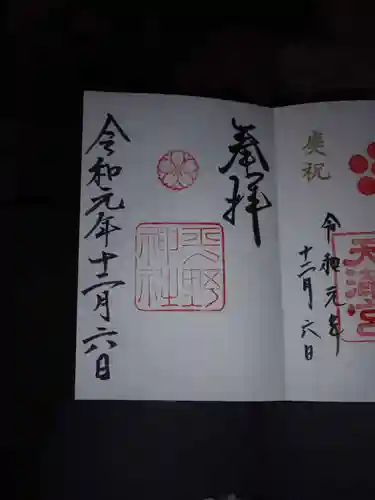 奉拝
平野神社
令和元年十二月六日
慶祝
天満宮
令和元年
十二月六日